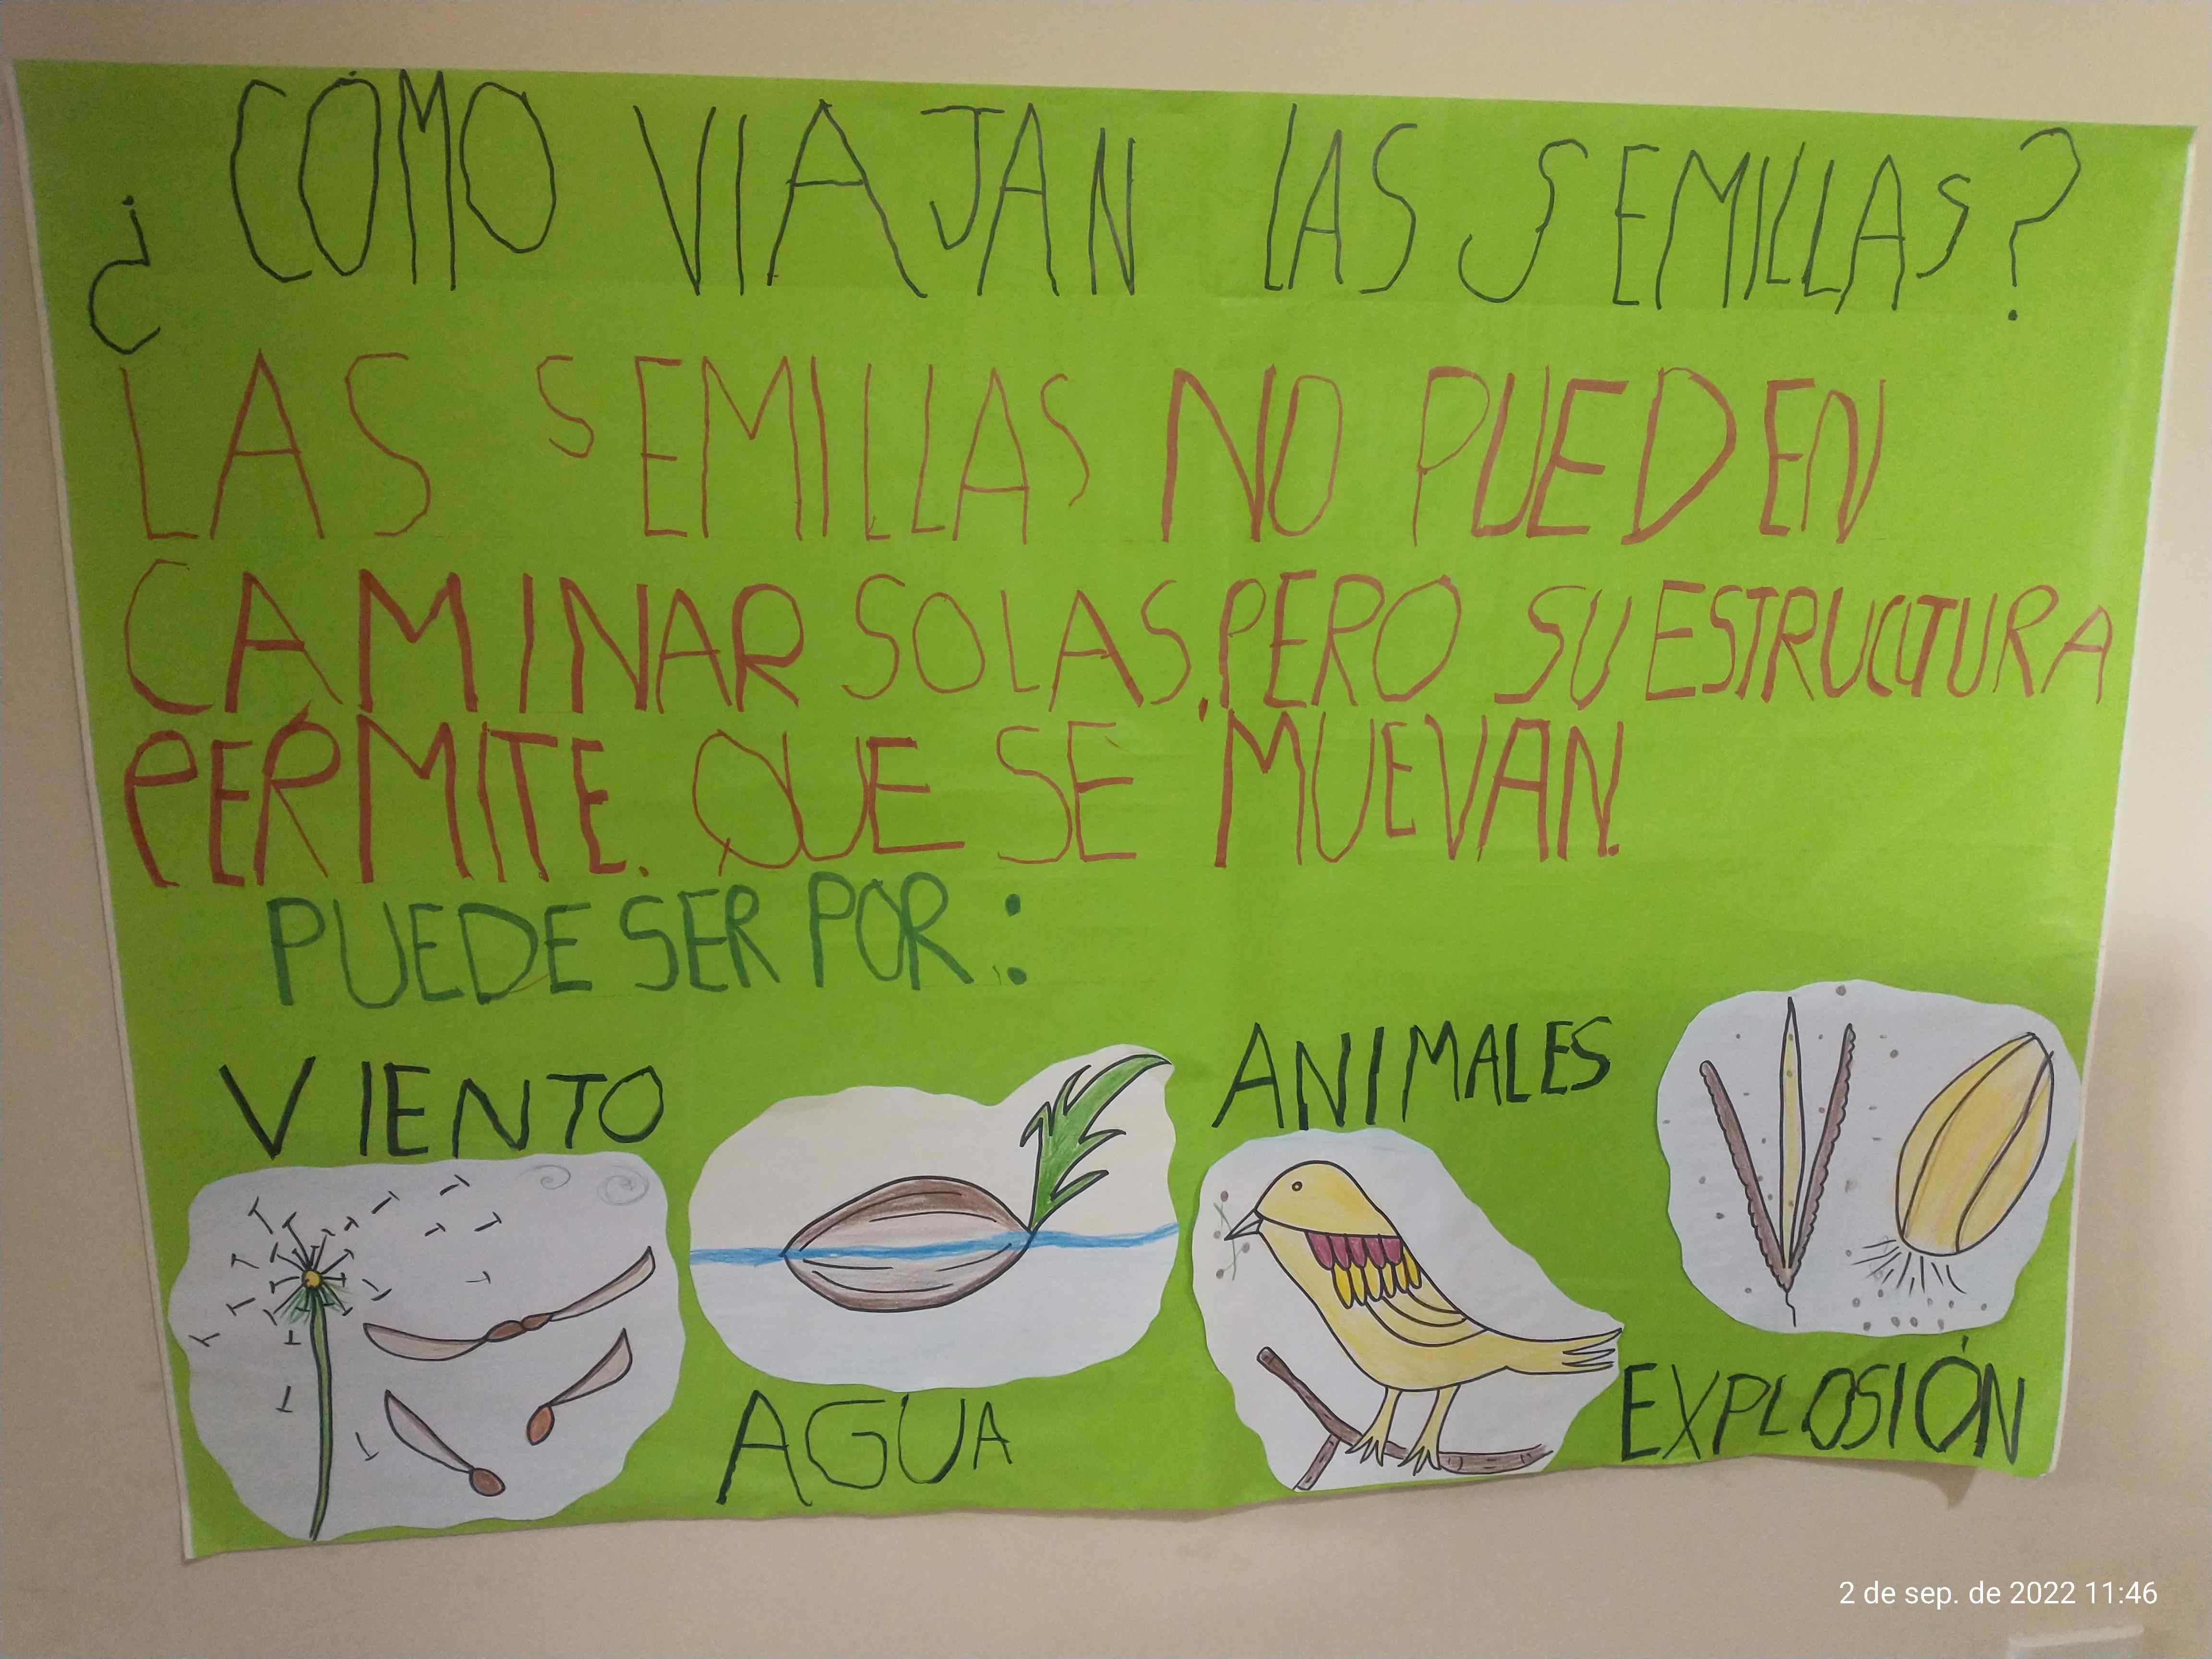 ¿CÓMO VIAJAN LAS SEMILLAS?
LAS SEMILLAS NO PUEDEN
CAMINAR SOLAS, PERO SU ESTRUCTURA
PERMITE. QUE SE MUEVAN.
PUEDE SER POR:
VIENTO
AGUA
ANIMALES
EXPLOSIÓN
2 de sep. de 2022 11:46